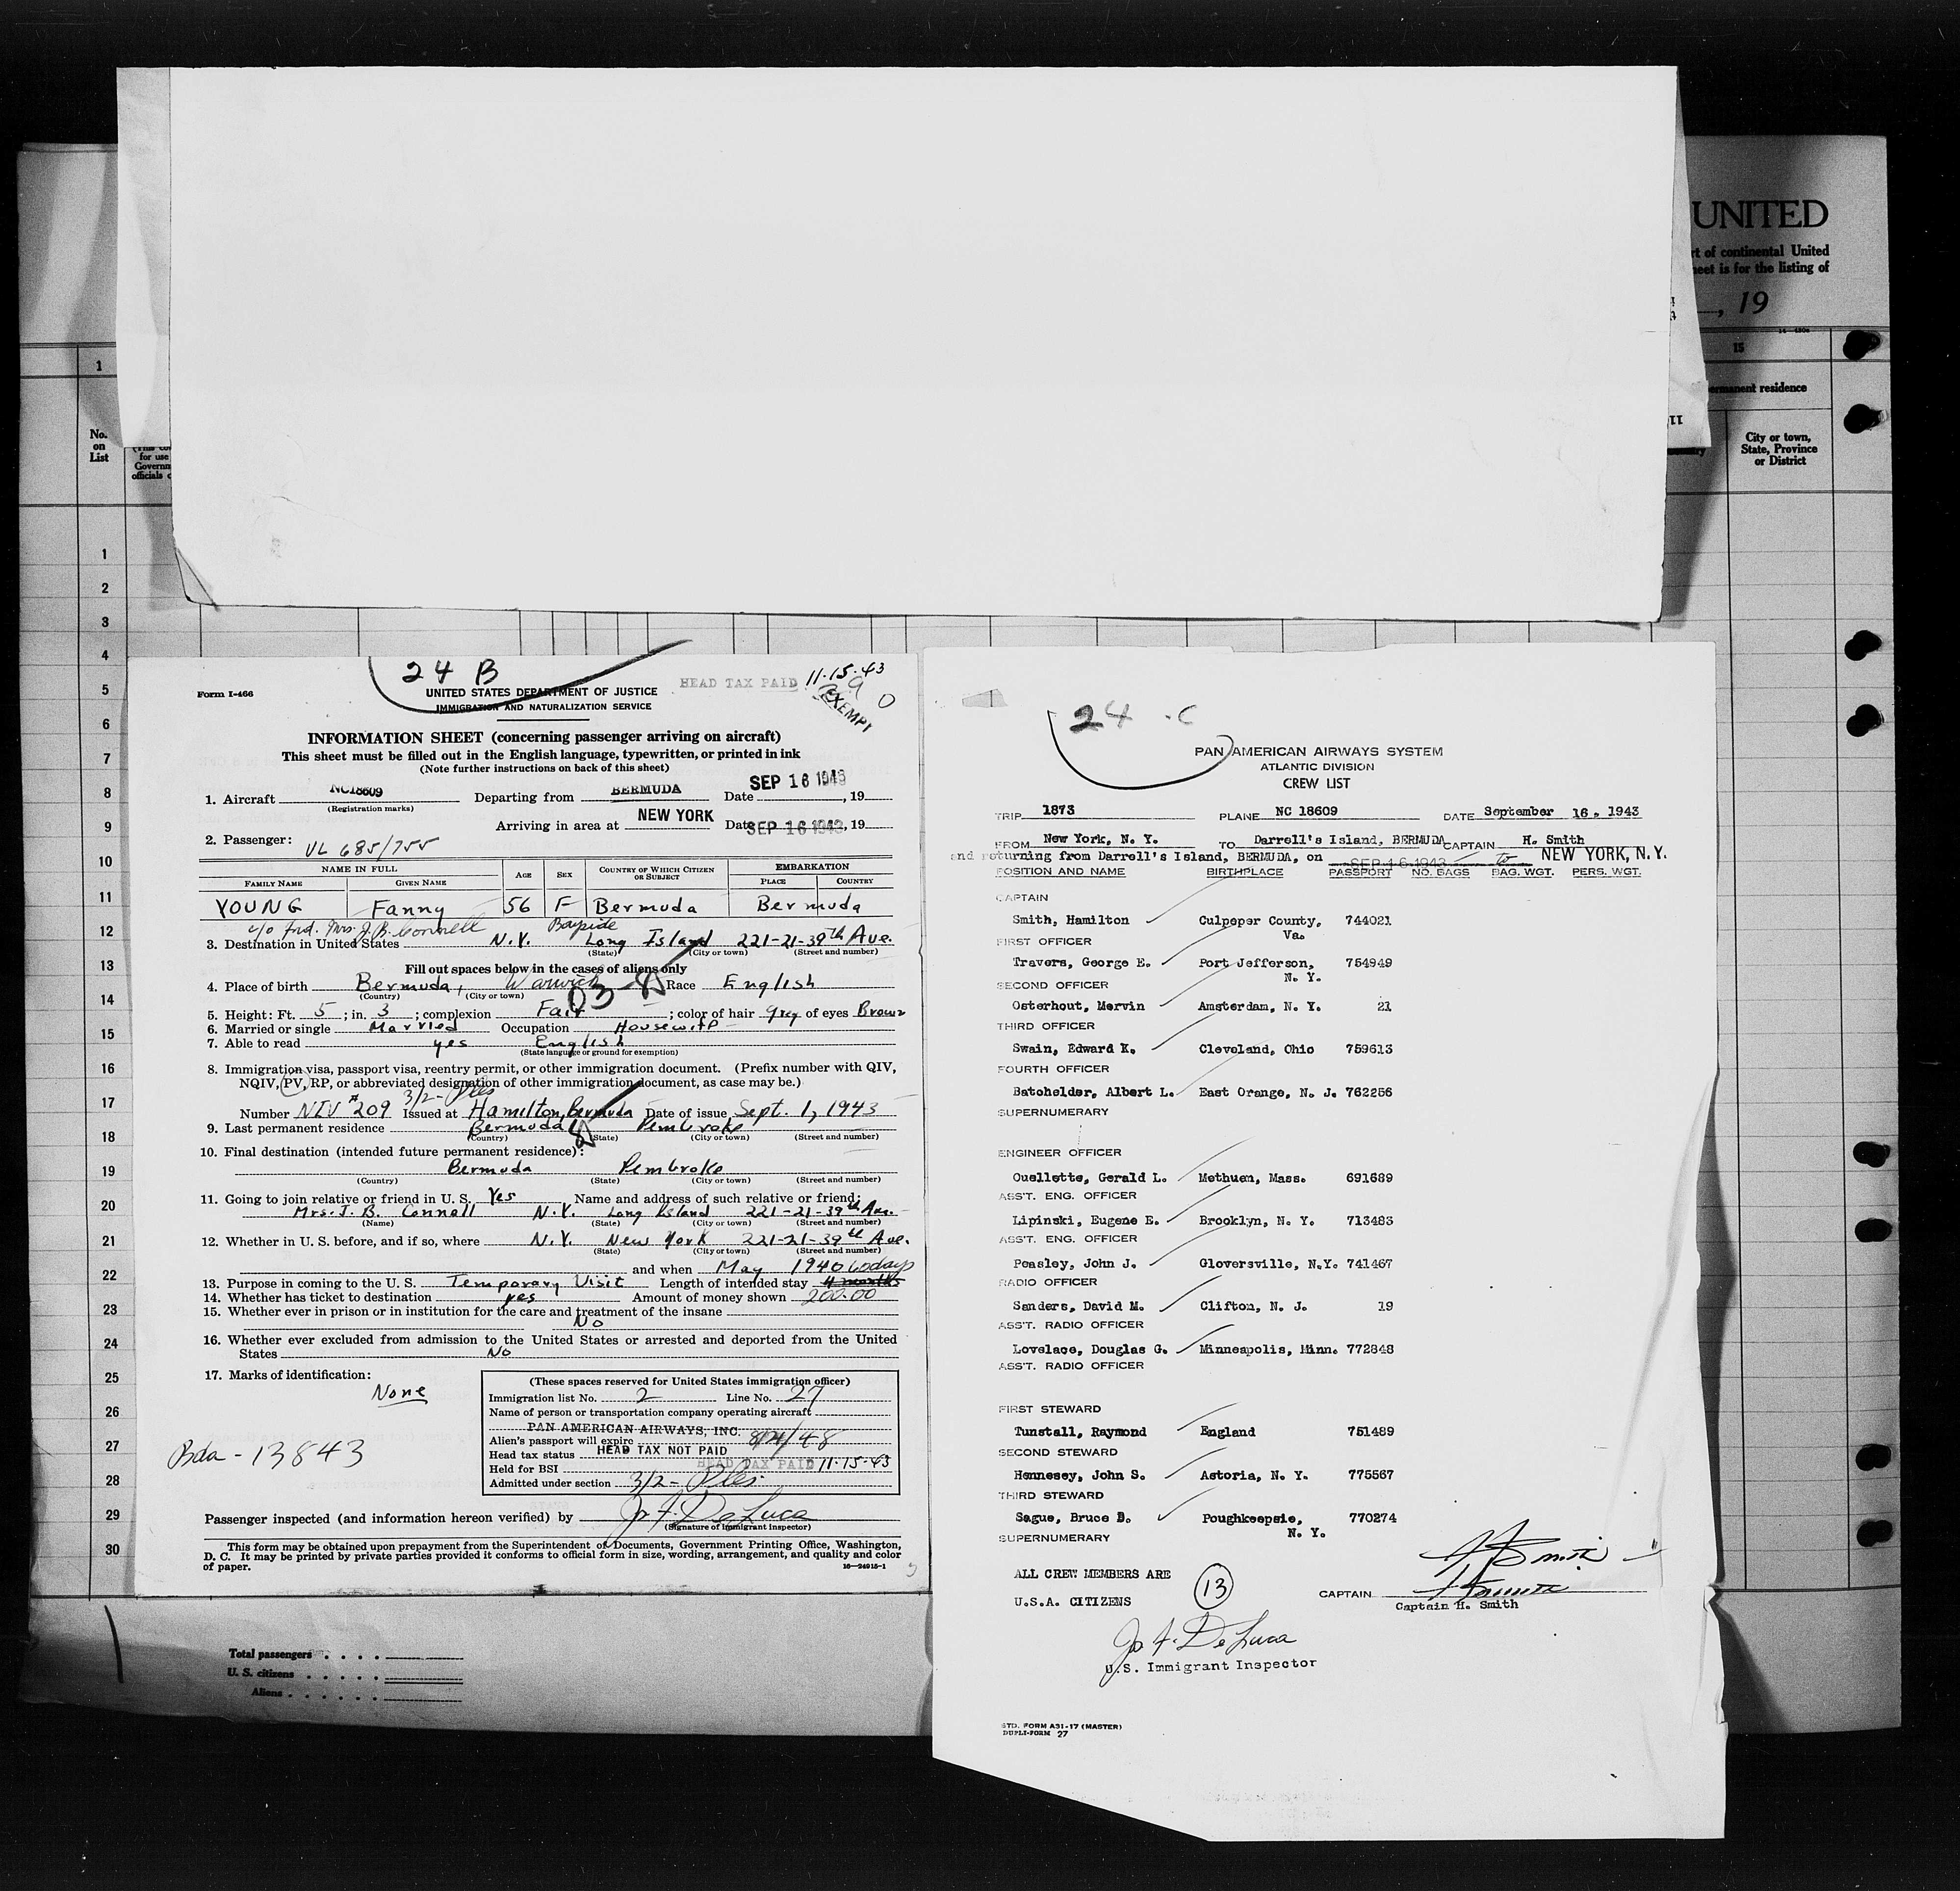 UNITED
rt of continental United
heet is for the listing of
, 19
1
15
permanent residence
No.
on
List
for use
Governm
officials
11
City or town,
State, Province
or District
1
2
3
4
5
6
7
8
9
10
11
12
13
14
15
16
17
18
19
20
21
22
23
24
25
26
27
28
29
30
Total passengers . . . .
U. S. citizens . . . . .
Aliens . . . . . .
24 B
Form I-466
UNITED STATES DEPARTMENT OF JUSTICE
IMMIGRATION AND NATURALIZATION SERVICE
HEAD TAX PAID 11-15-43
EXEMPT
INFORMATION SHEET (concerning passenger arriving on aircraft)
This sheet must be filled out in the English language, typewritten, or printed in ink
(Note further instructions on back of this sheet)
1. Aircraft NC18609 Departing from BERMUDA Date SEP 16 1943, 19
(Registration marks)
Arriving in area at NEW YORK Date SEP 16 1943, 19
2. Passenger: VL 685/755
NAME IN FULL AGE SEX COUNTRY OF WHICH CITIZEN OR SUBJECT EMBARKATION
FAMILY NAME GIVEN NAME PLACE COUNTRY
YOUNG Fanny 56 F Bermuda Bermuda
c/o frd. Mrs. J. B. Connell Bayside
3. Destination in United States N.Y. Long Island 221-21-39th Ave.
(State) (City or town) (Street and number)
Fill out spaces below in the cases of aliens only
4. Place of birth Bermuda, Warwick Race English
(Country) (City or town)
03-
5. Height: Ft. 5; in. 3; complexion Fair; color of hair Grey of eyes Brown
6. Married or single Married Occupation Housewife
7. Able to read yes English
(State language or ground for exemption)
8. Immigration visa, passport visa, reentry permit, or other immigration document. (Prefix number with QIV,
NQIV, PV, RP, or abbreviated designation of other immigration document, as case may be.)
3/2-
Number NIV #209 Issued at Hamilton, Bermuda Date of issue Sept. 1, 1943
9. Last permanent residence Bermuda Pembroke
(Country) (State) (City or town) (Street and number)
10. Final destination (intended future permanent residence):
Bermuda Pembroke
(Country) (State) (City or town) (Street and number)
11. Going to join relative or friend in U. S. Yes Name and address of such relative or friend:
Mrs. J. B. Connell N.Y. Long Island 221-21-39th Ave.
(Name) (State) (City or town) (Street and number)
12. Whether in U. S. before, and if so, where N.Y. New York 221-21-39th Ave.
(State) (City or town) (Street and number)
and when May 1940 60 days
13. Purpose in coming to the U. S. Temporary Visit Length of intended stay 4 months
14. Whether has ticket to destination yes Amount of money shown 200.00
15. Whether ever in prison or in institution for the care and treatment of the insane
No
16. Whether ever excluded from admission to the United States or arrested and deported from the United
States No
17. Marks of identification:
None
(These spaces reserved for United States immigration officer)
Immigration list No. 2 Line No. 27
Name of person or transportation company operating aircraft
PAN AMERICAN AIRWAYS, INC.
Alien's passport will expire 8/24/48
Head tax status HEAD TAX NOT PAID
Held for BSI HEAD TAX PAID 11-15-43
Admitted under section 3/2-
Bda-13843
Passenger inspected (and information hereon verified) by Jo F. DeLuca
(Signature of immigrant inspector)
This form may be obtained upon prepayment from the Superintendent of Documents, Government Printing Office, Washington,
D. C. It may be printed by private parties provided it conforms to official form in size, wording, arrangement, and quality and color
of paper.
16—24915-1
24 -C
PAN AMERICAN AIRWAYS SYSTEM
ATLANTIC DIVISION
CREW LIST
TRIP 1873 PLANE NC 18609 DATE September 16, 1943
FROM New York, N. Y. TO Darrell's Island, BERMUDA CAPTAIN H. Smith
and returning from Darrell's Island, BERMUDA, on SEP 16 1943 to NEW YORK, N.Y.
POSITION AND NAME BIRTHPLACE PASSPORT NO. BAGS BAG. WGT. PERS. WGT.
CAPTAIN
Smith, Hamilton Culpeper County, 744021
Va.
FIRST OFFICER
Travers, George E. Port Jefferson, 754949
N. Y.
SECOND OFFICER
Osterhout, Mervin Amsterdam, N. Y. 21
THIRD OFFICER
Swain, Edward K. Cleveland, Ohio 759613
FOURTH OFFICER
Batchelder, Albert L. East Orange, N. J. 762256
SUPERNUMERARY
ENGINEER OFFICER
Ouellette, Gerald L. Methuen, Mass. 691689
ASS'T. ENG. OFFICER
Lipinski, Eugene E. Brooklyn, N. Y. 713483
ASS'T. ENG. OFFICER
Peasley, John J. Gloversville, N.Y. 741467
RADIO OFFICER
Sanders, David M. Clifton, N. J. 19
ASS'T. RADIO OFFICER
Lovelace, Douglas G. Minneapolis, Minn. 772848
ASS'T. RADIO OFFICER
FIRST STEWARD
Tunstall, Raymond England 751489
SECOND STEWARD
Hennesey, John S. Astoria, N. Y. 775567
THIRD STEWARD
Sague, Bruce D. Poughkeepsie, 770274
N. Y.
SUPERNUMERARY
ALL CREW MEMBERS ARE
U.S.A. CITIZENS
13
H Smith
CAPTAIN H Smith
Captain H. Smith
Jo F. DeLuca
U.S. Immigrant Inspector
STD. FORM A31-17 (MASTER)
DUPLI-FORM 27